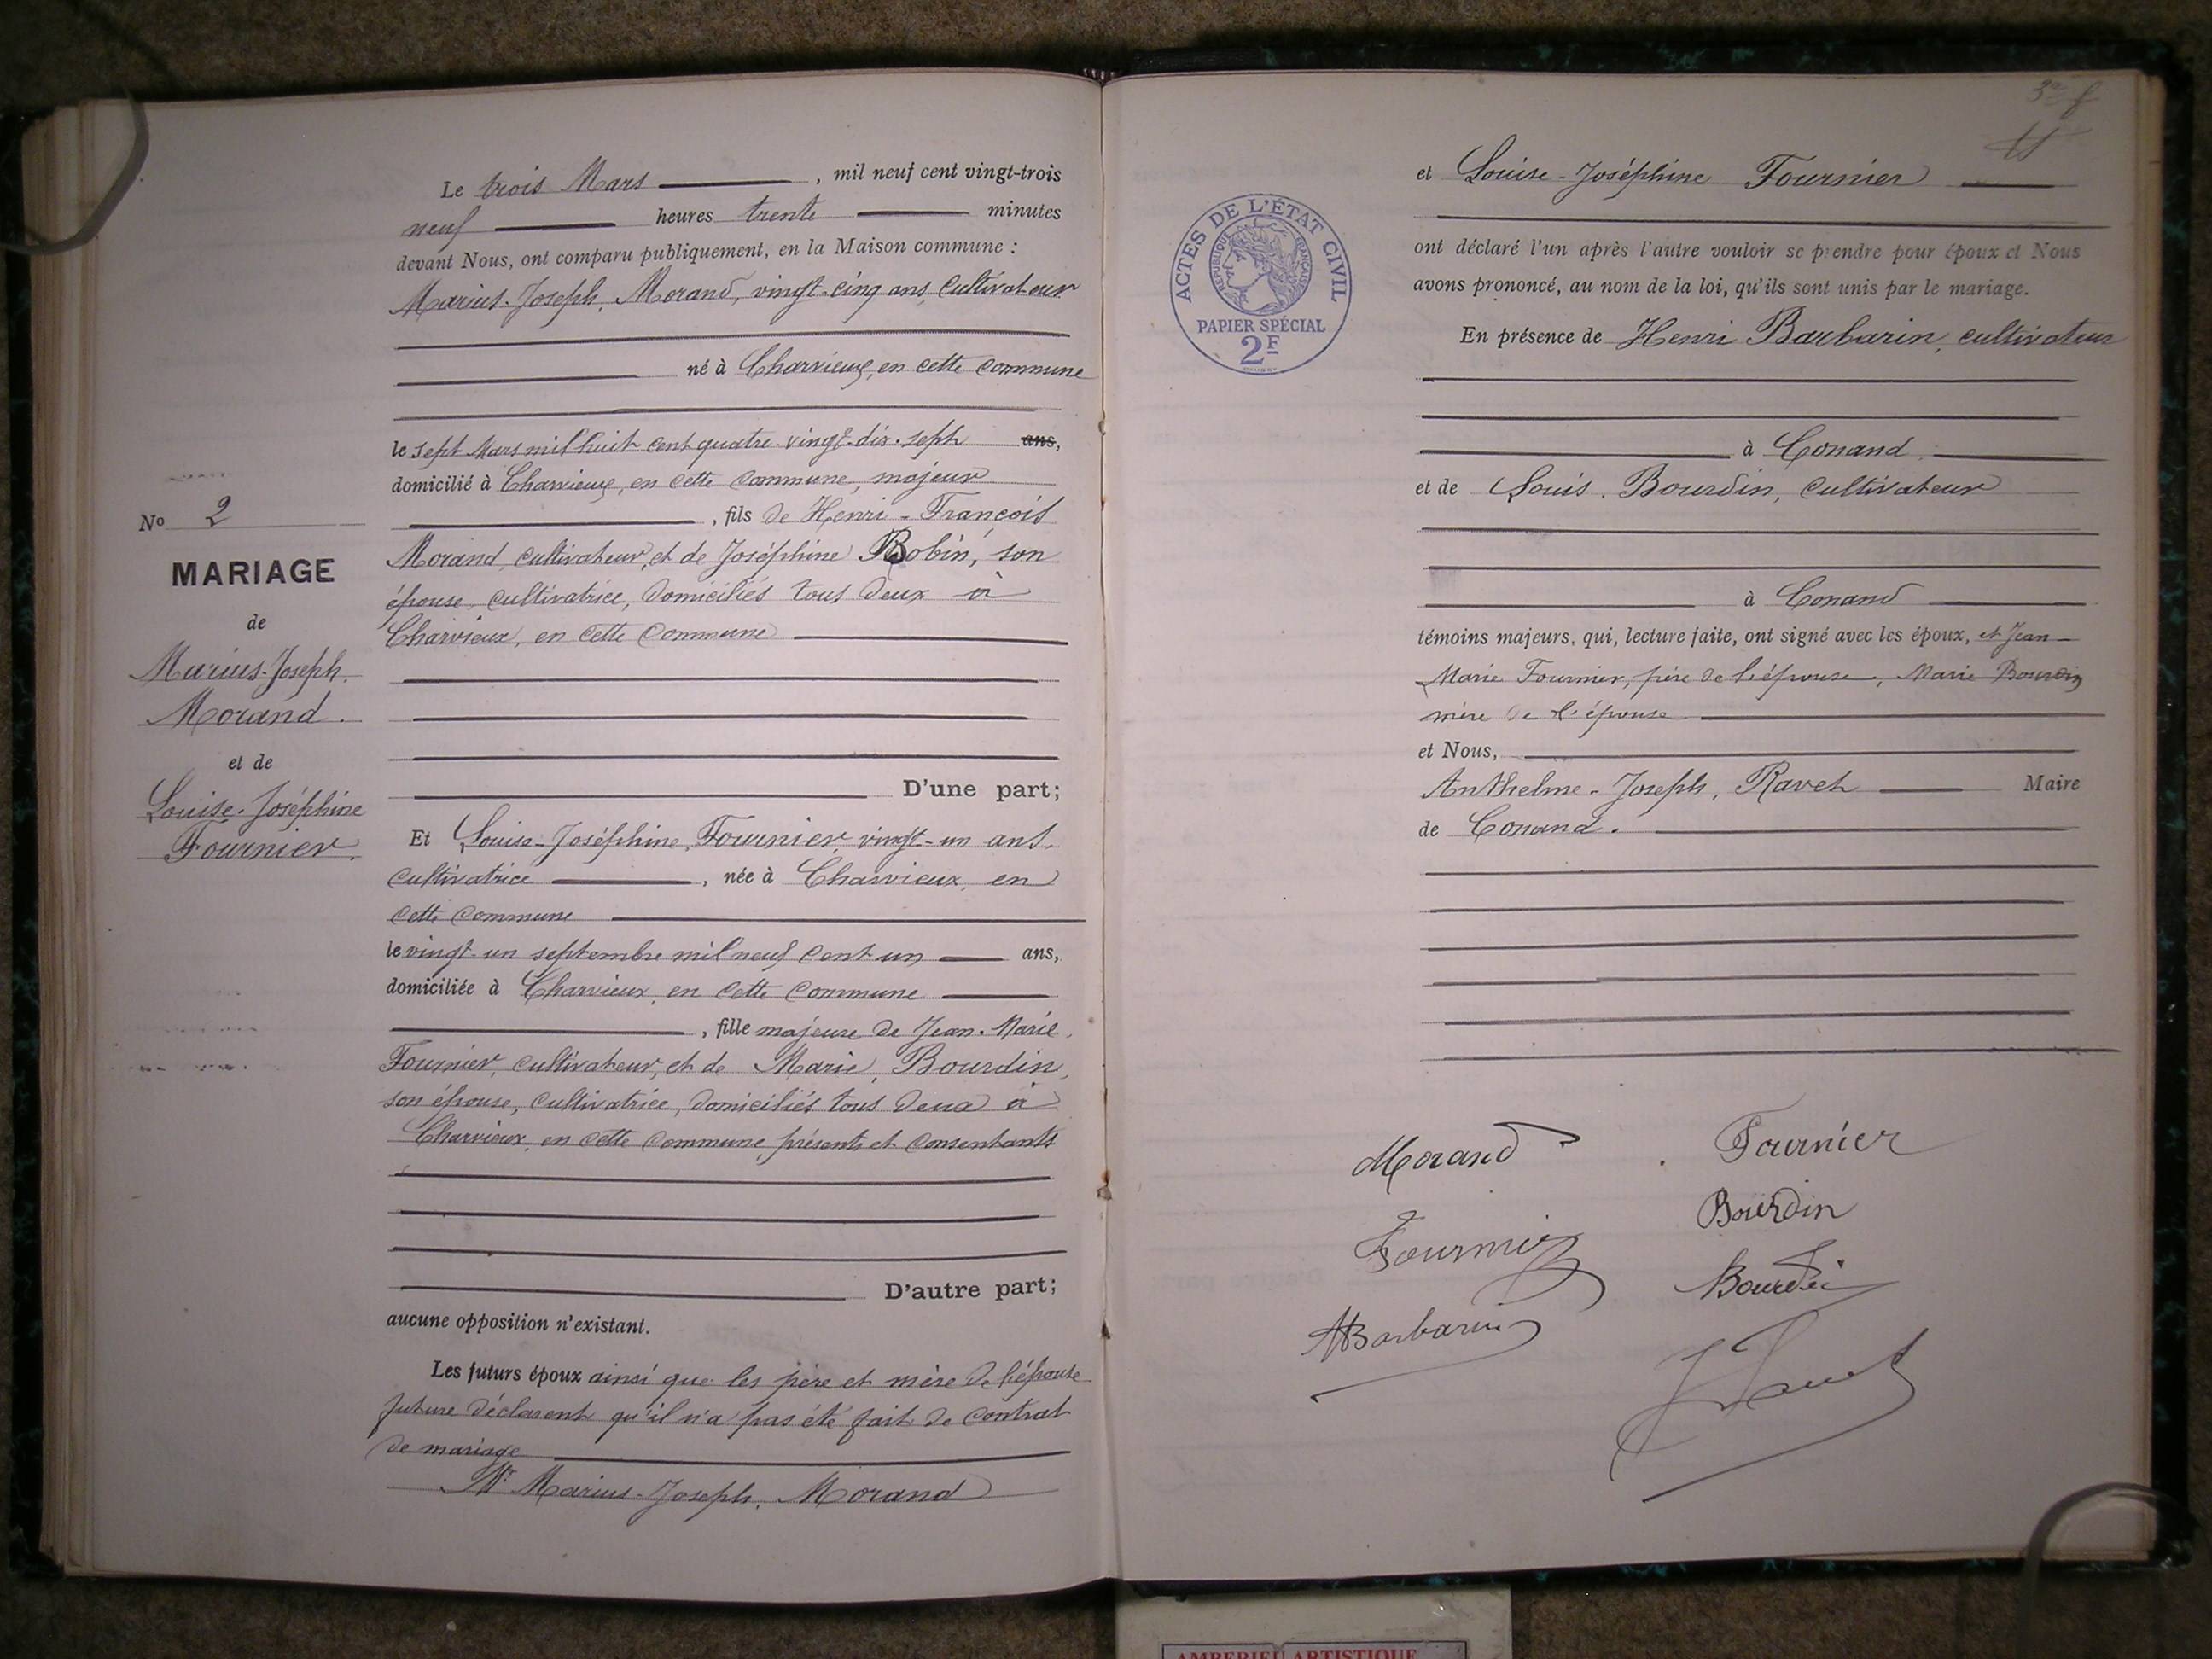 Le trois Mars, mil neuf cent vingt-trois
neuf heures trente minutes
devant Nous, ont comparu publiquement, en la Maison commune :
Marius-Joseph, Morand, vingt-cinq ans, cultivateur
né à Charvieux, en cette commune
le sept Mars mil huit cent quatre vingt-dix-sept ans,
domicilié à Charvieux, en cette commune, majeur
, fils de Henri-François
Morand, cultivateur, et de Joséphine Bobin, son
épouse, cultivatrice, domiciliés tous deux à
Charvieux, en cette commune
D'une part;
No 2
MARIAGE
de
Marius-Joseph.
Morand.
et de
Louise-Joséphine
Fournier.
Et Louise-Joséphine, Fournier, vingt-un ans.
cultivatrice, née à Charvieux, en
cette commune
le vingt-un septembre mil neuf cent un ans,
domiciliée à Charvieux, en cette commune
, fille majeure de Jean-Marie.
Fournier, cultivateur, et de Marie, Bourdin,
son épouse, cultivatrice, domiciliés tous deux à
Charvieux, en cette commune, présents et consentants
D'autre part;
aucune opposition n'existant.
Les futurs époux ainsi que les père et mère de l'épouse
future déclarent qu'il n'a pas été fait de contrat
de mariage
Mr Marius-Joseph, Morand
ACTES DE L'ÉTAT CIVIL
RÉPUBLIQUE FRANÇAISE
PAPIER SPÉCIAL
2F
et Louise-Joséphine Fournier
ont déclaré l'un après l'autre vouloir se prendre pour époux et Nous
avons prononcé, au nom de la loi, qu'ils sont unis par le mariage.
En présence de Henri Barbarin, cultivateur
à Conand
et de Louis. Bourdin, cultivateur
à Conand
témoins majeurs, qui, lecture faite, ont signé avec les époux, et Jean-
Marie Fournier, père de l'épouse, Marie Bourdin
mère de l'épouse
et Nous,
Anthelme-Joseph, Ravet Maire
de Conand.
Morand Fournier
Bourdin
Fournier
Bourdin
HBarbarin
J Ravet
AMBERIEU ARTISTIQUE